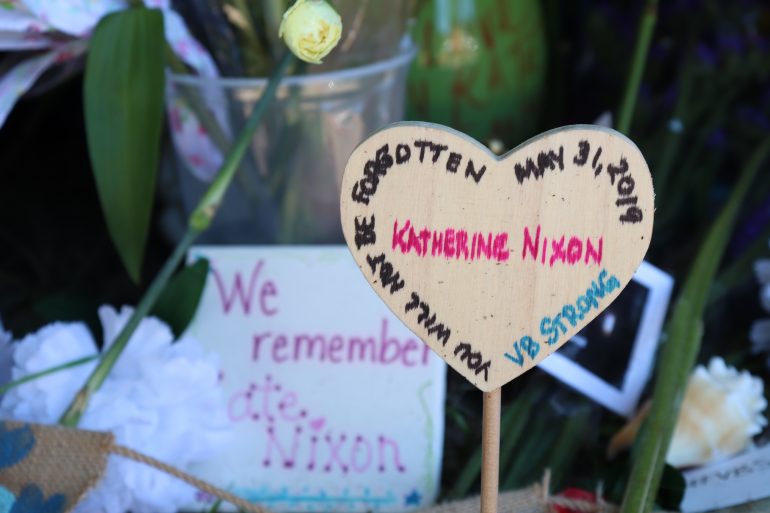 YOU WILL NOT BE FORGOTTEN
MAY 31, 2019
KATHERINE NIXON
VB STRONG
We
remember
ate
Nixon